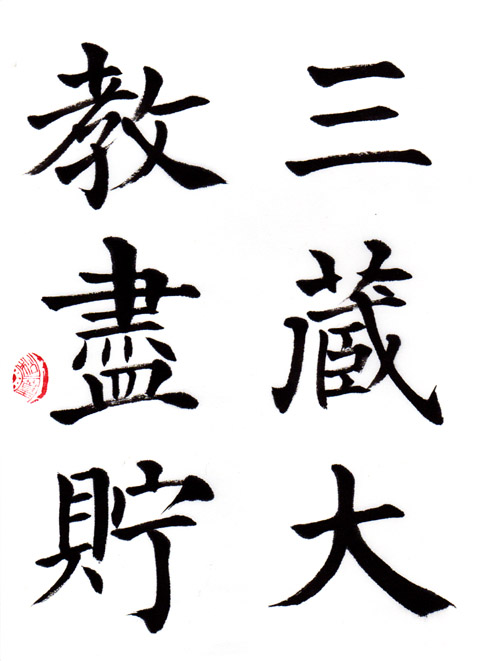 三藏大
教盡貯